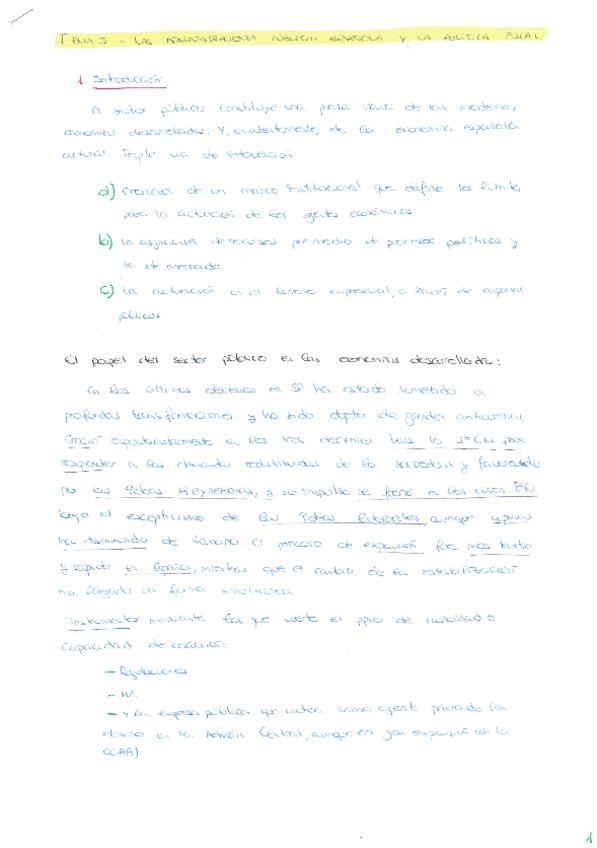 TEMA 5 - LAS ADMINISTRACIONES PÚBLICAS ESPAÑOLA Y LA POLÍTICA FISCAL
1. Introducción
El sector público constituye una pieza clave de las modernas
economías desarrolladas. Y, evidentemente, de la economía española
actual. Triple vía de intervención
a) Creación de un marco institucional que define los límites
para la actuación de los agentes económicos
b) La asignación de recursos por medio de procesos políticos y
no de mercado
c) La actuación en el terreno empresarial, a través de empresas
públicas
El papel del sector público en las economías desarrolladas:
En las últimas décadas el SP ha estado sometido a
profundas transformaciones y ha sido objeto de grandes controversias.
Creció espectacularmente en las tres décadas tras la 2ª GM para
responder a las demandas redistributivas de la sociedad y favorecido
por las ideas Keynesianas, y su impulso se frenó a los años 80
bajo el escepticismo de las ideas liberales aunque apenas
ha disminuido de tamaño. El proceso de expansión fue más tardío
y rápido en España, mientras que el cambio de la estabilización
ha llegado en forma simultánea.
Instrumentos mediante los que ejerce el ppio de autoridad o
capacidad de coacción:
- Regulaciones
- HP.
- y la empresa pública que actúa como agente privado (en
en la Admón Central, aunque en gran expansión en la
CCAA)
1